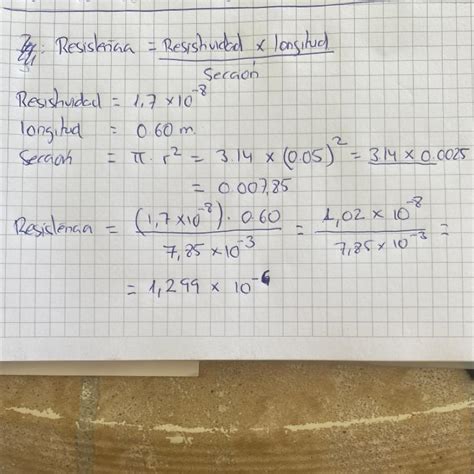 Resistencia = Resistividad × longitud
Sección
Resistividad = 1,7 × 10⁻⁸
longitud = 0.60 m.
Sección = π · r² = 3.14 × (0.05)² = 3.14 × 0.0025
= 0.007,85
Resistencia = (1,7 × 10⁻⁸) · 0.60 / 7,85 × 10⁻³ = 1,02 × 10⁻⁸ / 7,85 × 10⁻³ =
= 1,299 × 10⁻⁶